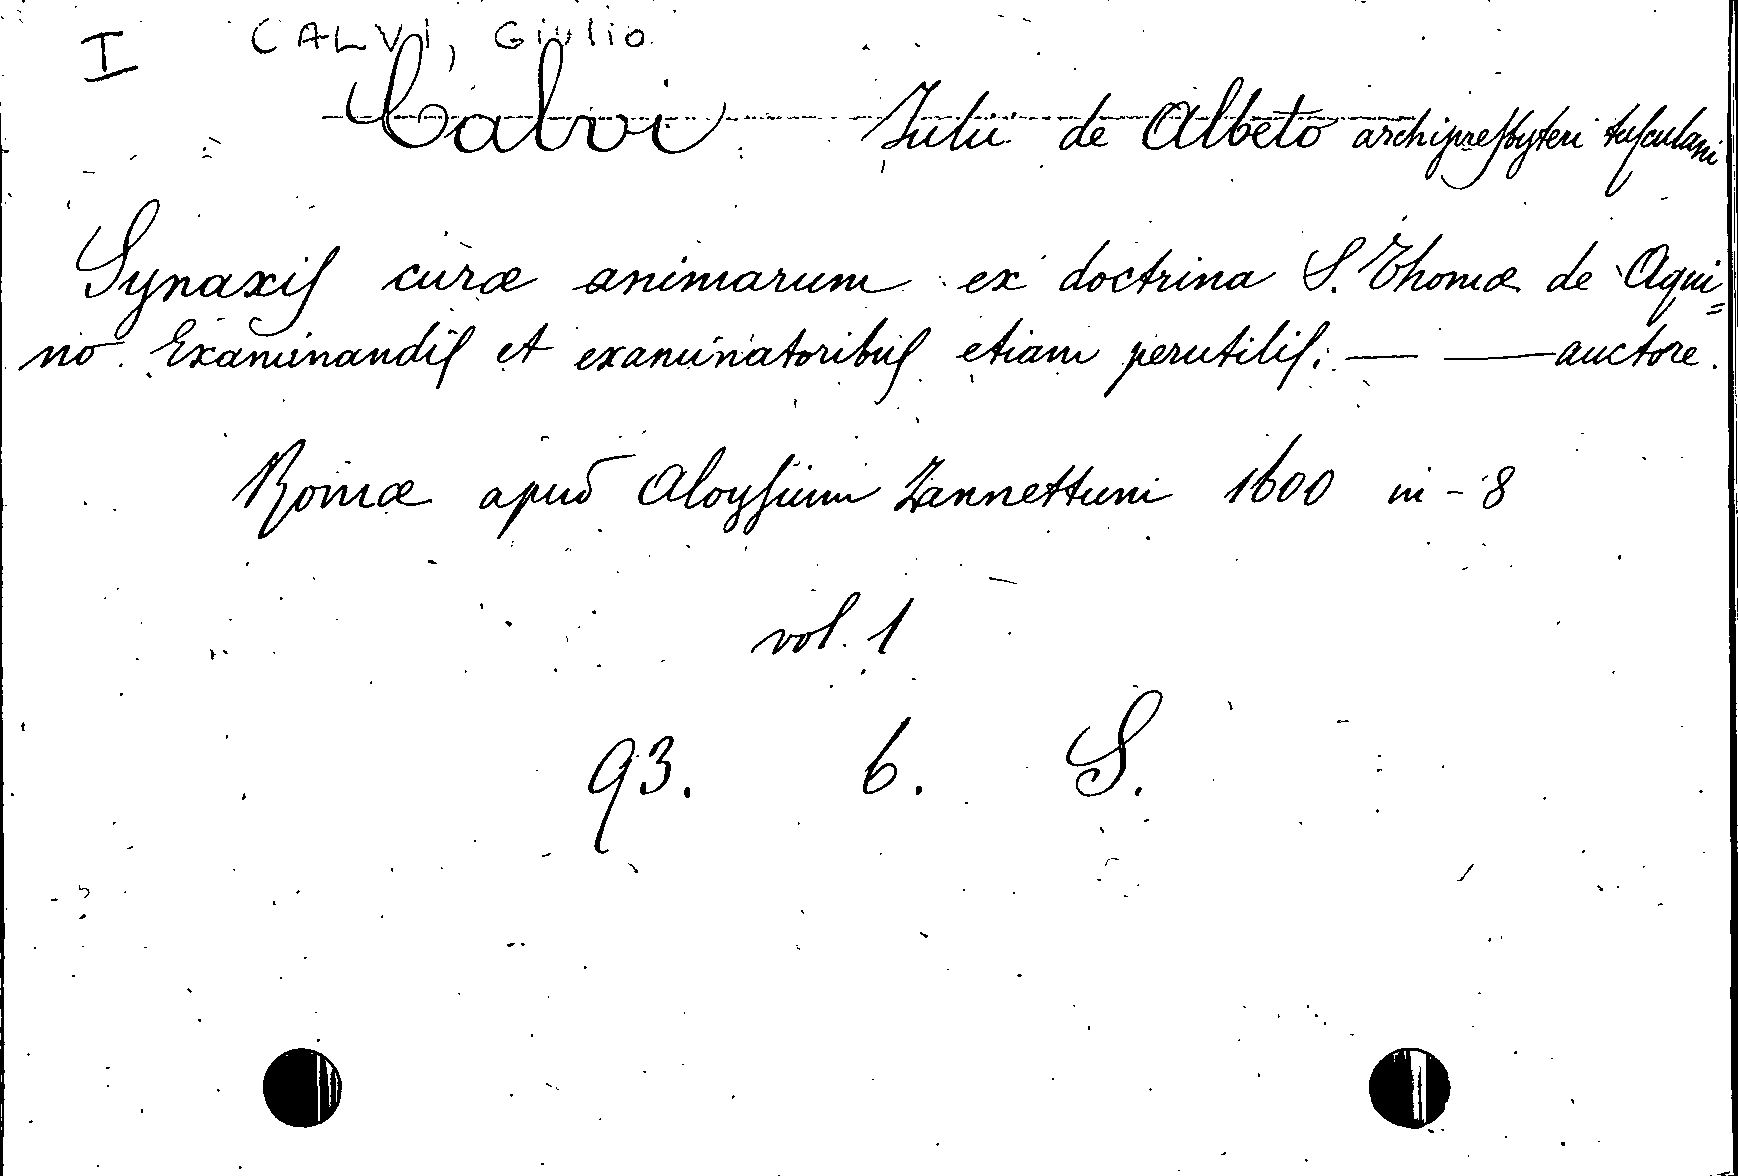 I CALVI, Giulio
Calvi Iulii de Albeto archipresbyteri tusculani
Synaxis curæ animarum ex doctrina S. Thomæ de Aqui=
no Examinandis et examinatoribus etiam perutilis: — — auctore.
Romæ apud Aloysium Zannettum 1600 in - 8
vol. 1
93. 6. S.